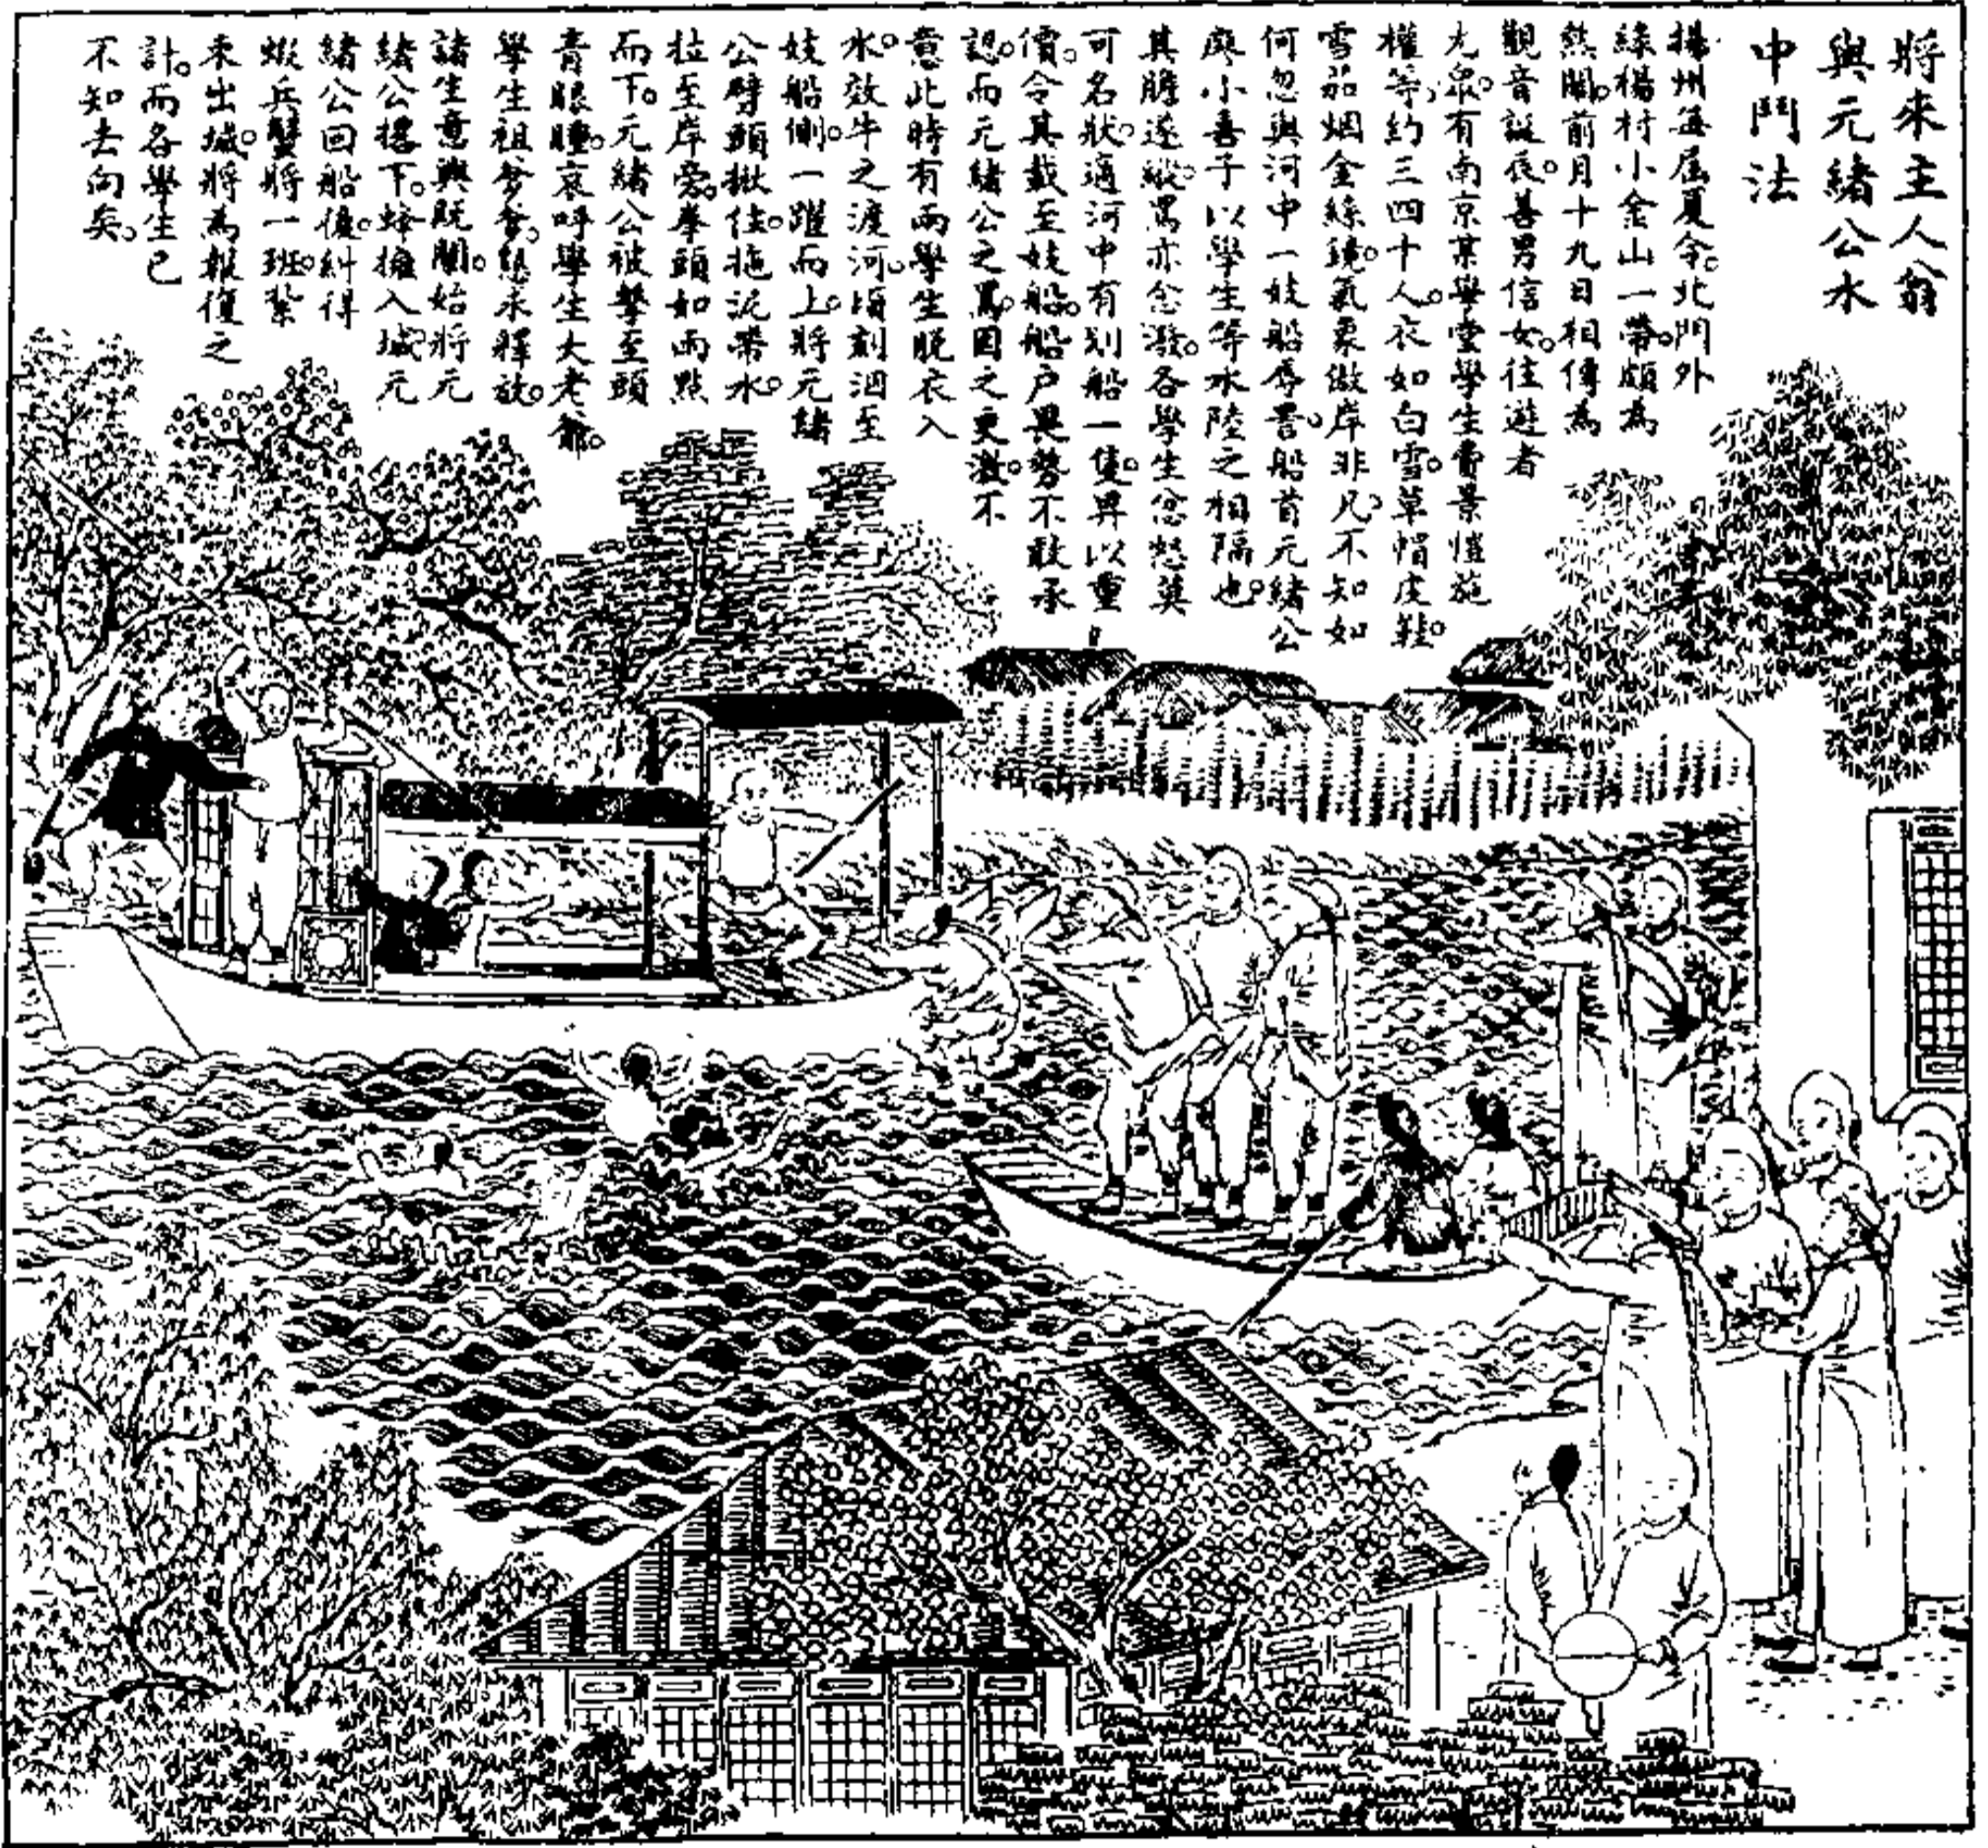 將來主人翁
與元緒公水
中鬥法
揚州每屆夏令。北門外
綠楊村小金山一帶。頗為
熱鬧。前月十九日相傳為
觀音誕夜。善男信女。往遊者
尤眾。有南京某學堂學生 景愷施
權等。約三四十人。衣如白雪。草帽皮鞋。
雪茄烟金絲鏡。氣象傲岸非凡。不知如
何忽與河中一妓船辱詈。船首元緒公
小善子以學生等水陸之相隔也。
其膽遂縱。罵亦愈潑。各學生忿怒莫
可名狀。適河中有划船一隻。畀以重
價。令其載至妓船。船户畏勢不敢承
認。而元緒公之罵。因之更激。不
意此時有兩學生脫衣入
水。效牛之渡河。頃刻泅至
妓船側。一躍而上。將元緒
公劈頭揪住。拖泥帶水。
拉至岸旁。拳頭如雨點
而下。元緒公被擊至頭
青眼腫。哀呼學生大老爺。
學生祖爹爹。懇求釋放。
諸生意興既闌。始將元
緒公擲下。蜂擁入城。元
緒公回船。復糾得
蝦兵蟹將一班。紮
束出城。將為報復之
計。而各學生已
不知去向矣。